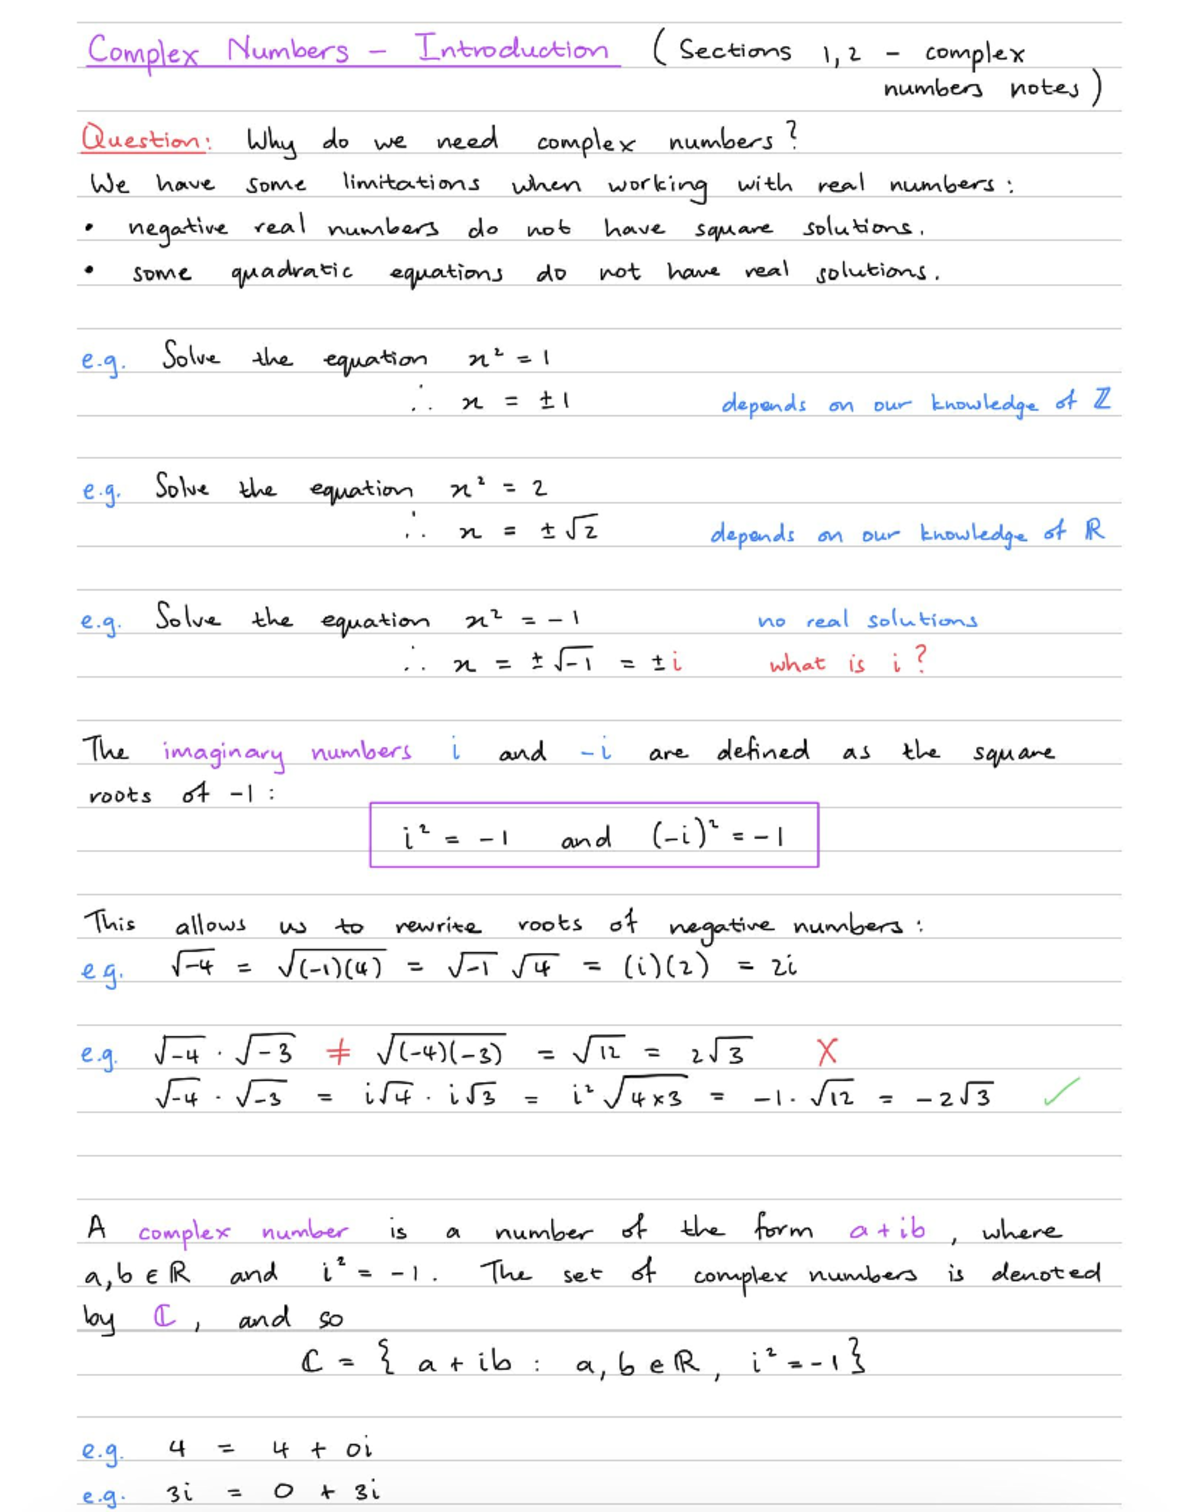 Complex Numbers - Introduction (Sections 1,2 - complex
numbers notes)
Question: Why do we need complex numbers?
We have some limitations when working with real numbers:
• negative real numbers do not have square solutions.
• some quadratic equations do not have real solutions.
e.g. Solve the equation x² = 1
∴ x = ±1 depends on our knowledge of ℤ
e.g. Solve the equation x² = 2
∴ x = ±√2 depends on our knowledge of ℝ
e.g. Solve the equation x² = -1 no real solutions
∴ x = ±√-1 = ±i what is i?
The imaginary numbers i and -i are defined as the square
roots of -1:
i² = -1 and (-i)² = -1
This allows us to rewrite roots of negative numbers:
e.g. √-4 = √(-1)(4) = √-1 √4 = (i)(2) = 2i
e.g. √-4 · √-3 ≠ √(-4)(-3) = √12 = 2√3 ✗
√-4 · √-3 = i√4 · i√3 = i² √4×3 = -1 · √12 = -2√3 ✓
A complex number is a number of the form a + ib, where
a, b ∈ ℝ and i² = -1. The set of complex numbers is denoted
by ℂ, and so
ℂ = { a + ib : a, b ∈ ℝ, i² = -1}
e.g. 4 = 4 + 0i
e.g. 3i = 0 + 3i